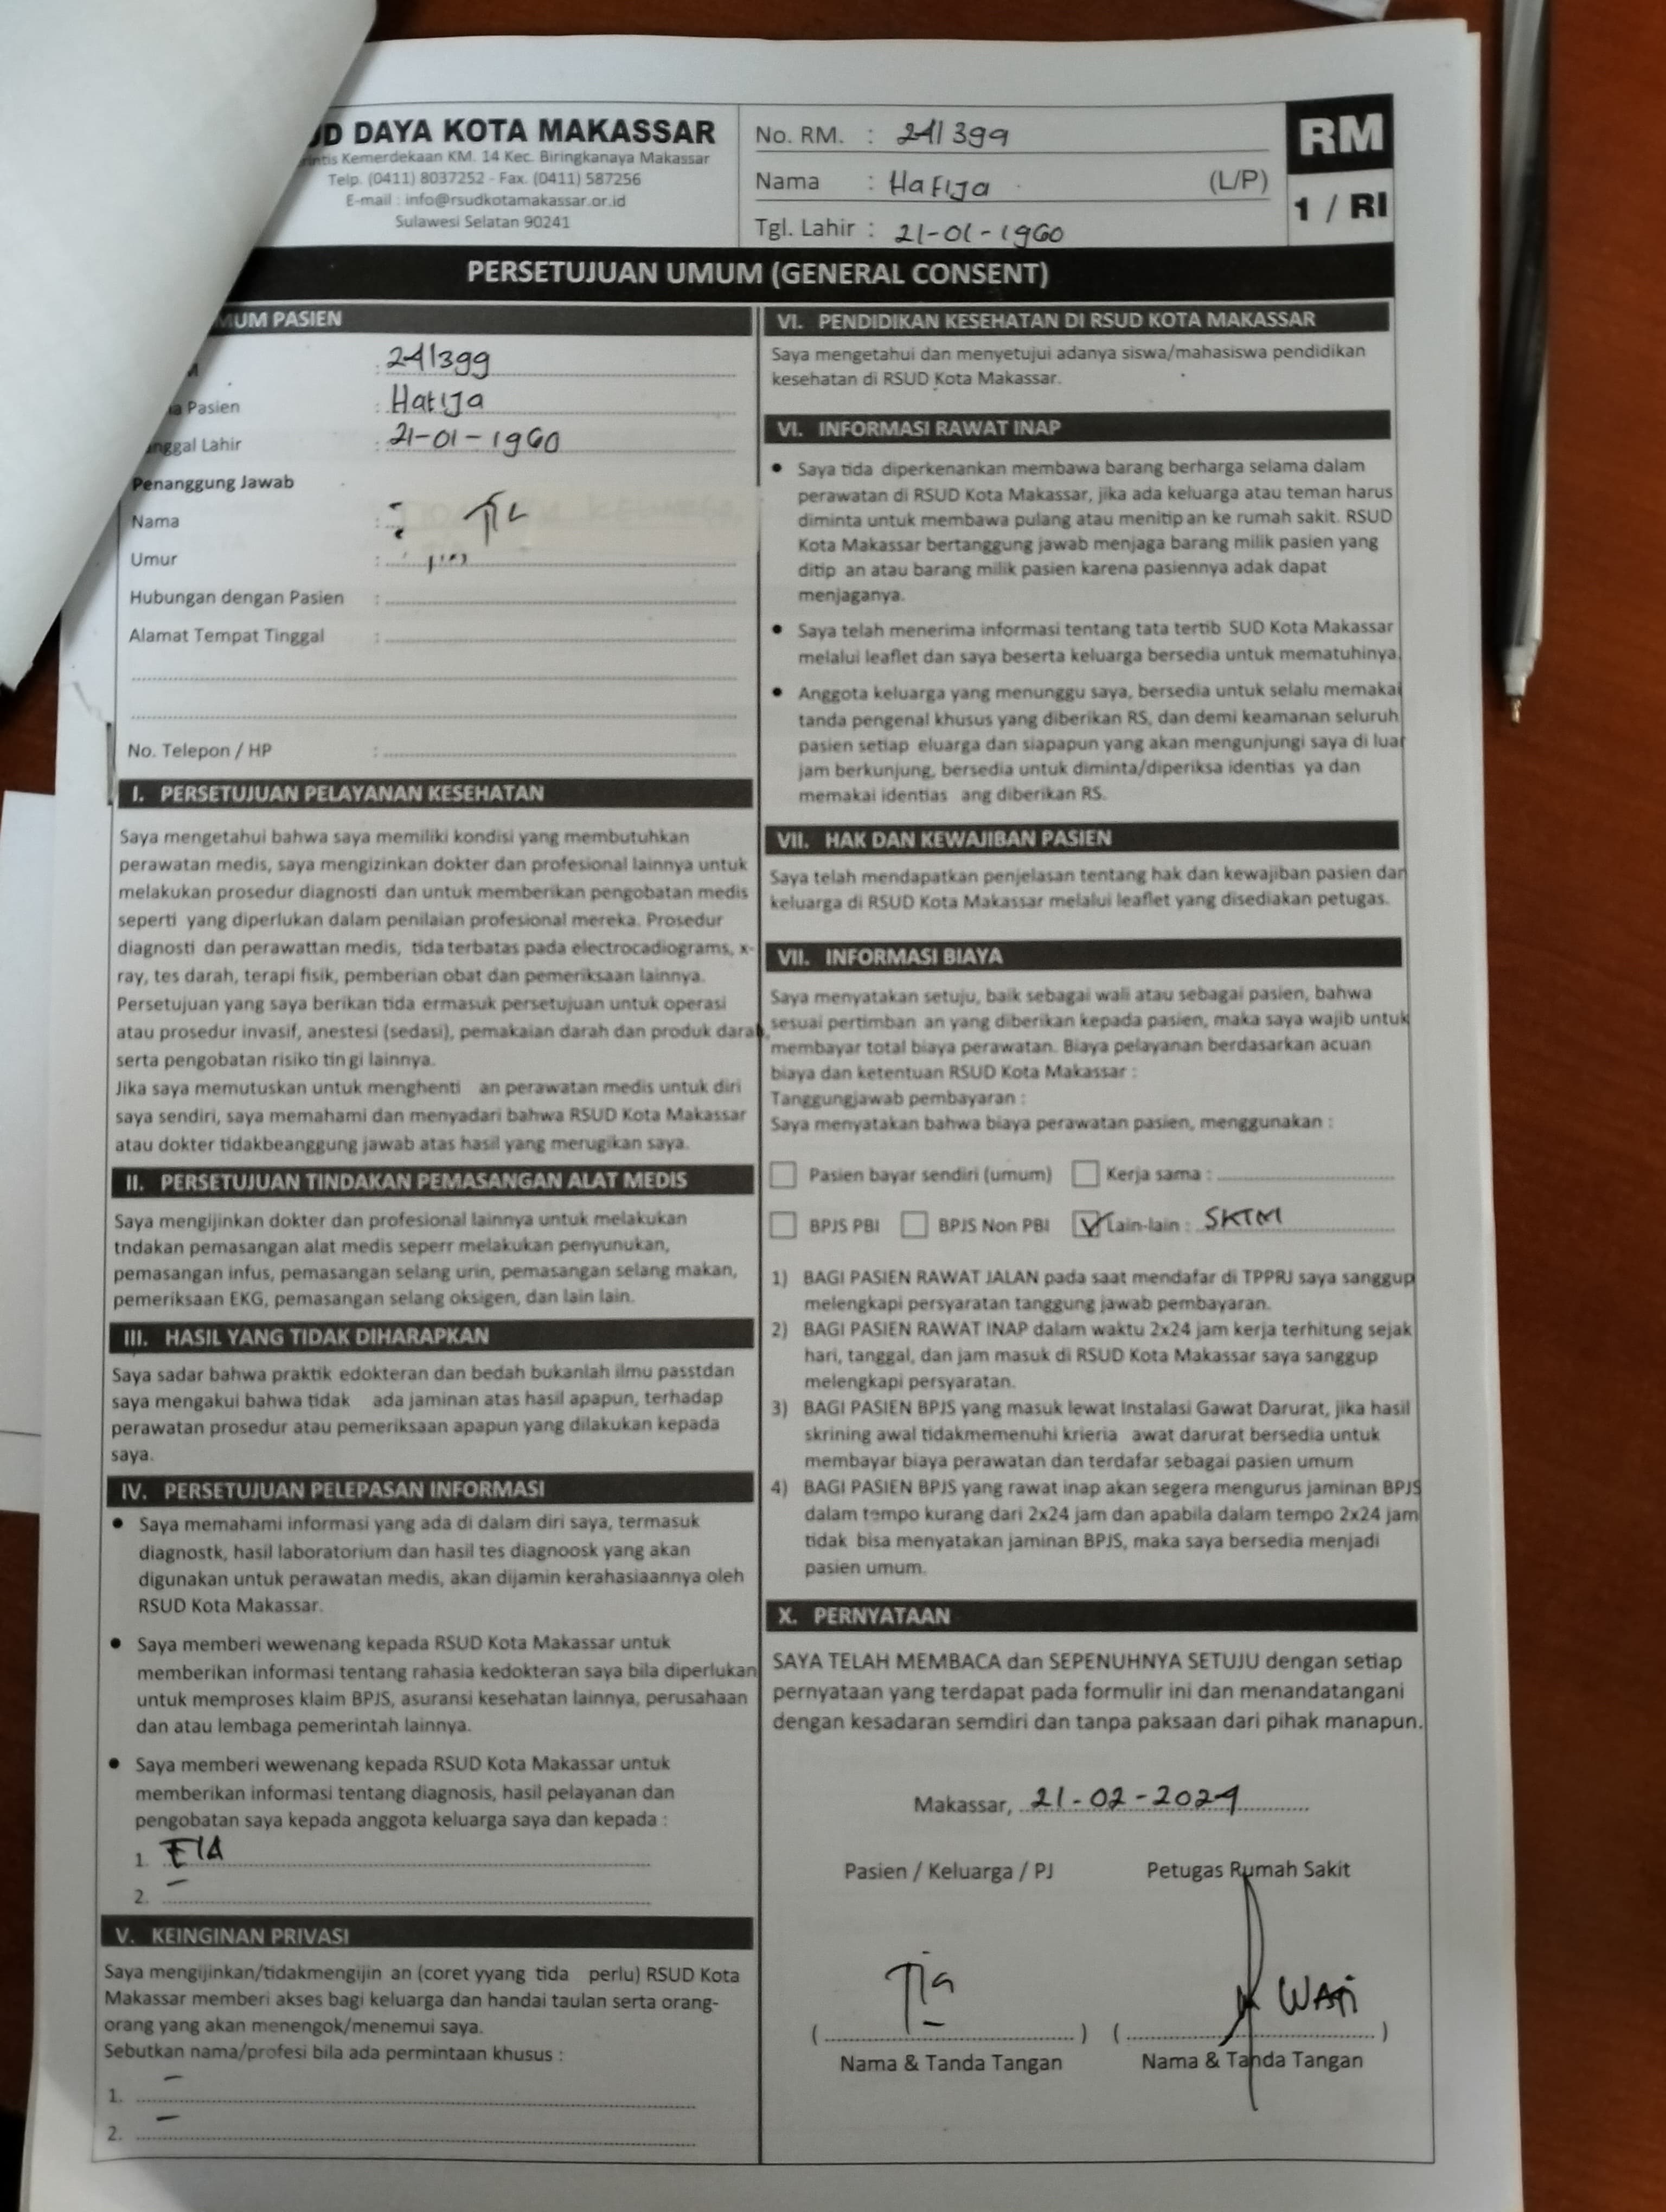 DAYA KOTA MAKASSAR
Kemerdekaan KM. 14 Kec. Biringkanaya Makassar
Telp. (0411) 8037252 - Fax. (0411) 587256
E-mail : info@rsudkotamakassar.or.id
Sulawesi Selatan 90241
No. RM. : 241399
Nama : Hatija (L/P)
Tgl. Lahir : 21-01-1960
RM
1 / RI
PERSETUJUAN UMUM (GENERAL CONSENT)
PASIEN
: 241399
Pasien : Hatija
Lahir : 21-01-1960
Penanggung Jawab
Nama :
Umur :
Hubungan dengan Pasien :
Alamat Tempat Tinggal :
No. Telepon / HP :
I. PERSETUJUAN PELAYANAN KESEHATAN
Saya mengetahui bahwa saya memiliki kondisi yang membutuhkan
perawatan medis, saya mengizinkan dokter dan profesional lainnya untuk
melakukan prosedur diagnosti dan untuk memberikan pengobatan medis
seperti yang diperlukan dalam penilaian profesional mereka. Prosedur
diagnosti dan perawattan medis, tida terbatas pada electrocadiograms, x-
ray, tes darah, terapi fisik, pemberian obat dan pemeriksaan lainnya.
Persetujuan yang saya berikan tida ermasuk persetujuan untuk operasi
atau prosedur invasif, anestesi (sedasi), pemakaian darah dan produk darah,
serta pengobatan risiko tin gi lainnya.
Jika saya memutuskan untuk menghenti an perawatan medis untuk diri
saya sendiri, saya memahami dan menyadari bahwa RSUD Kota Makassar
atau dokter tidakbeanggung jawab atas hasil yang merugikan saya.
II. PERSETUJUAN TINDAKAN PEMASANGAN ALAT MEDIS
Saya mengijinkan dokter dan profesional lainnya untuk melakukan
tndakan pemasangan alat medis seperr melakukan penyunukan,
pemasangan infus, pemasangan selang urin, pemasangan selang makan,
pemeriksaan EKG, pemasangan selang oksigen, dan lain lain.
III. HASIL YANG TIDAK DIHARAPKAN
Saya sadar bahwa praktik edokteran dan bedah bukanlah ilmu passtdan
saya mengakui bahwa tidak ada jaminan atas hasil apapun, terhadap
perawatan prosedur atau pemeriksaan apapun yang dilakukan kepada
saya.
IV. PERSETUJUAN PELEPASAN INFORMASI
• Saya memahami informasi yang ada di dalam diri saya, termasuk
diagnostk, hasil laboratorium dan hasil tes diagnoosk yang akan
digunakan untuk perawatan medis, akan dijamin kerahasiaannya oleh
RSUD Kota Makassar.
• Saya memberi wewenang kepada RSUD Kota Makassar untuk
memberikan informasi tentang rahasia kedokteran saya bila diperlukan
untuk memproses klaim BPJS, asuransi kesehatan lainnya, perusahaan
dan atau lembaga pemerintah lainnya.
• Saya memberi wewenang kepada RSUD Kota Makassar untuk
memberikan informasi tentang diagnosis, hasil pelayanan dan
pengobatan saya kepada anggota keluarga saya dan kepada :
1.
2. -
V. KEINGINAN PRIVASI
Saya mengijinkan/tidakmengijin an (coret yyang tida perlu) RSUD Kota
Makassar memberi akses bagi keluarga dan handai taulan serta orang-
orang yang akan menengok/menemui saya.
Sebutkan nama/profesi bila ada permintaan khusus :
1. -
2. -
VI. PENDIDIKAN KESEHATAN DI RSUD KOTA MAKASSAR
Saya mengetahui dan menyetujui adanya siswa/mahasiswa pendidikan
kesehatan di RSUD Kota Makassar.
VI. INFORMASI RAWAT INAP
• Saya tida diperkenankan membawa barang berharga selama dalam
perawatan di RSUD Kota Makassar, jika ada keluarga atau teman harus
diminta untuk membawa pulang atau menitip an ke rumah sakit. RSUD
Kota Makassar bertanggung jawab menjaga barang milik pasien yang
ditip an atau barang milik pasien karena pasiennya adak dapat
menjaganya.
• Saya telah menerima informasi tentang tata tertib SUD Kota Makassar
melalui leaflet dan saya beserta keluarga bersedia untuk mematuhinya.
• Anggota keluarga yang menunggu saya, bersedia untuk selalu memakai
tanda pengenal khusus yang diberikan RS, dan demi keamanan seluruh
pasien setiap eluarga dan siapapun yang akan mengunjungi saya di luar
jam berkunjung, bersedia untuk diminta/diperiksa identias ya dan
memakai identias ang diberikan RS.
VII. HAK DAN KEWAJIBAN PASIEN
Saya telah mendapatkan penjelasan tentang hak dan kewajiban pasien dan
keluarga di RSUD Kota Makassar melalui leaflet yang disediakan petugas.
VII. INFORMASI BIAYA
Saya menyatakan setuju, baik sebagai wali atau sebagai pasien, bahwa
sesuai pertimban an yang diberikan kepada pasien, maka saya wajib untuk
membayar total biaya perawatan. Biaya pelayanan berdasarkan acuan
biaya dan ketentuan RSUD Kota Makassar :
Tanggungjawab pembayaran :
Saya menyatakan bahwa biaya perawatan pasien, menggunakan :
Pasien bayar sendiri (umum) Kerja sama :
BPJS PBI BPJS Non PBI Lain-lain : SKTM
1) BAGI PASIEN RAWAT JALAN pada saat mendafar di TPPRJ saya sanggup
melengkapi persyaratan tanggung jawab pembayaran.
2) BAGI PASIEN RAWAT INAP dalam waktu 2x24 jam kerja terhitung sejak
hari, tanggal, dan jam masuk di RSUD Kota Makassar saya sanggup
melengkapi persyaratan.
3) BAGI PASIEN BPJS yang masuk lewat Instalasi Gawat Darurat, jika hasil
skrining awal tidakmemenuhi krieria awat darurat bersedia untuk
membayar biaya perawatan dan terdafar sebagai pasien umum
4) BAGI PASIEN BPJS yang rawat inap akan segera mengurus jaminan BPJS
dalam tempo kurang dari 2x24 jam dan apabila dalam tempo 2x24 jam
tidak bisa menyatakan jaminan BPJS, maka saya bersedia menjadi
pasien umum.
X. PERNYATAAN
SAYA TELAH MEMBACA dan SEPENUHNYA SETUJU dengan setiap
pernyataan yang terdapat pada formulir ini dan menandatangani
dengan kesadaran semdiri dan tanpa paksaan dari pihak manapun.
Makassar, 21-02-2024
Pasien / Keluarga / PJ Petugas Rumah Sakit
WATi
Nama & Tanda Tangan Nama & Tanda Tangan